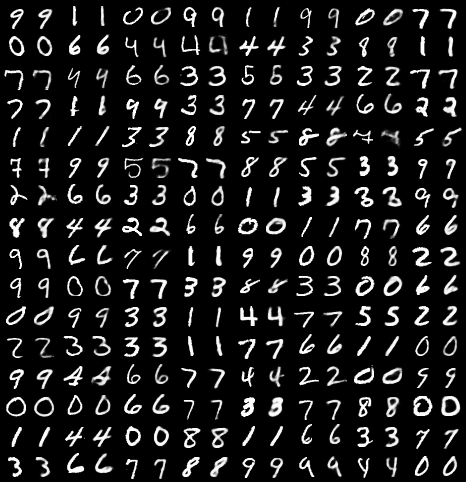 9 9 1 1 0 0 9 9 1 1 9 9 0 0 7 7
0 0 6 6 4 4 4 4 4 4 3 3 8 8 1 1
7 7 4 4 6 6 3 3 5 5 3 3 2 2 7 7
7 7 1 1 9 9 3 3 7 7 4 4 6 6 2 2
1 1 1 1 3 3 8 8 5 5 8 8 7 7 5 5
7 7 9 9 5 5 7 7 8 8 5 5 3 3 9 9
2 2 6 6 3 3 0 0 1 1 3 3 3 3 9 9
8 8 4 4 2 2 6 6 0 0 1 1 7 7 6 6
9 9 6 6 7 7 1 1 9 9 0 0 8 8 2 2
9 9 0 0 7 7 3 3 8 8 3 3 0 0 6 6
0 0 9 9 3 3 1 1 4 4 7 7 5 5 2 2
2 2 3 3 3 3 1 1 7 7 6 6 1 1 0 0
9 9 4 4 6 6 7 7 4 4 2 2 0 0 9 9
0 0 0 0 6 6 7 7 3 3 7 7 8 8 0 0
1 1 4 4 0 0 8 8 1 1 6 6 3 3 7 7
3 3 6 6 7 7 8 8 9 9 9 9 4 4 0 0